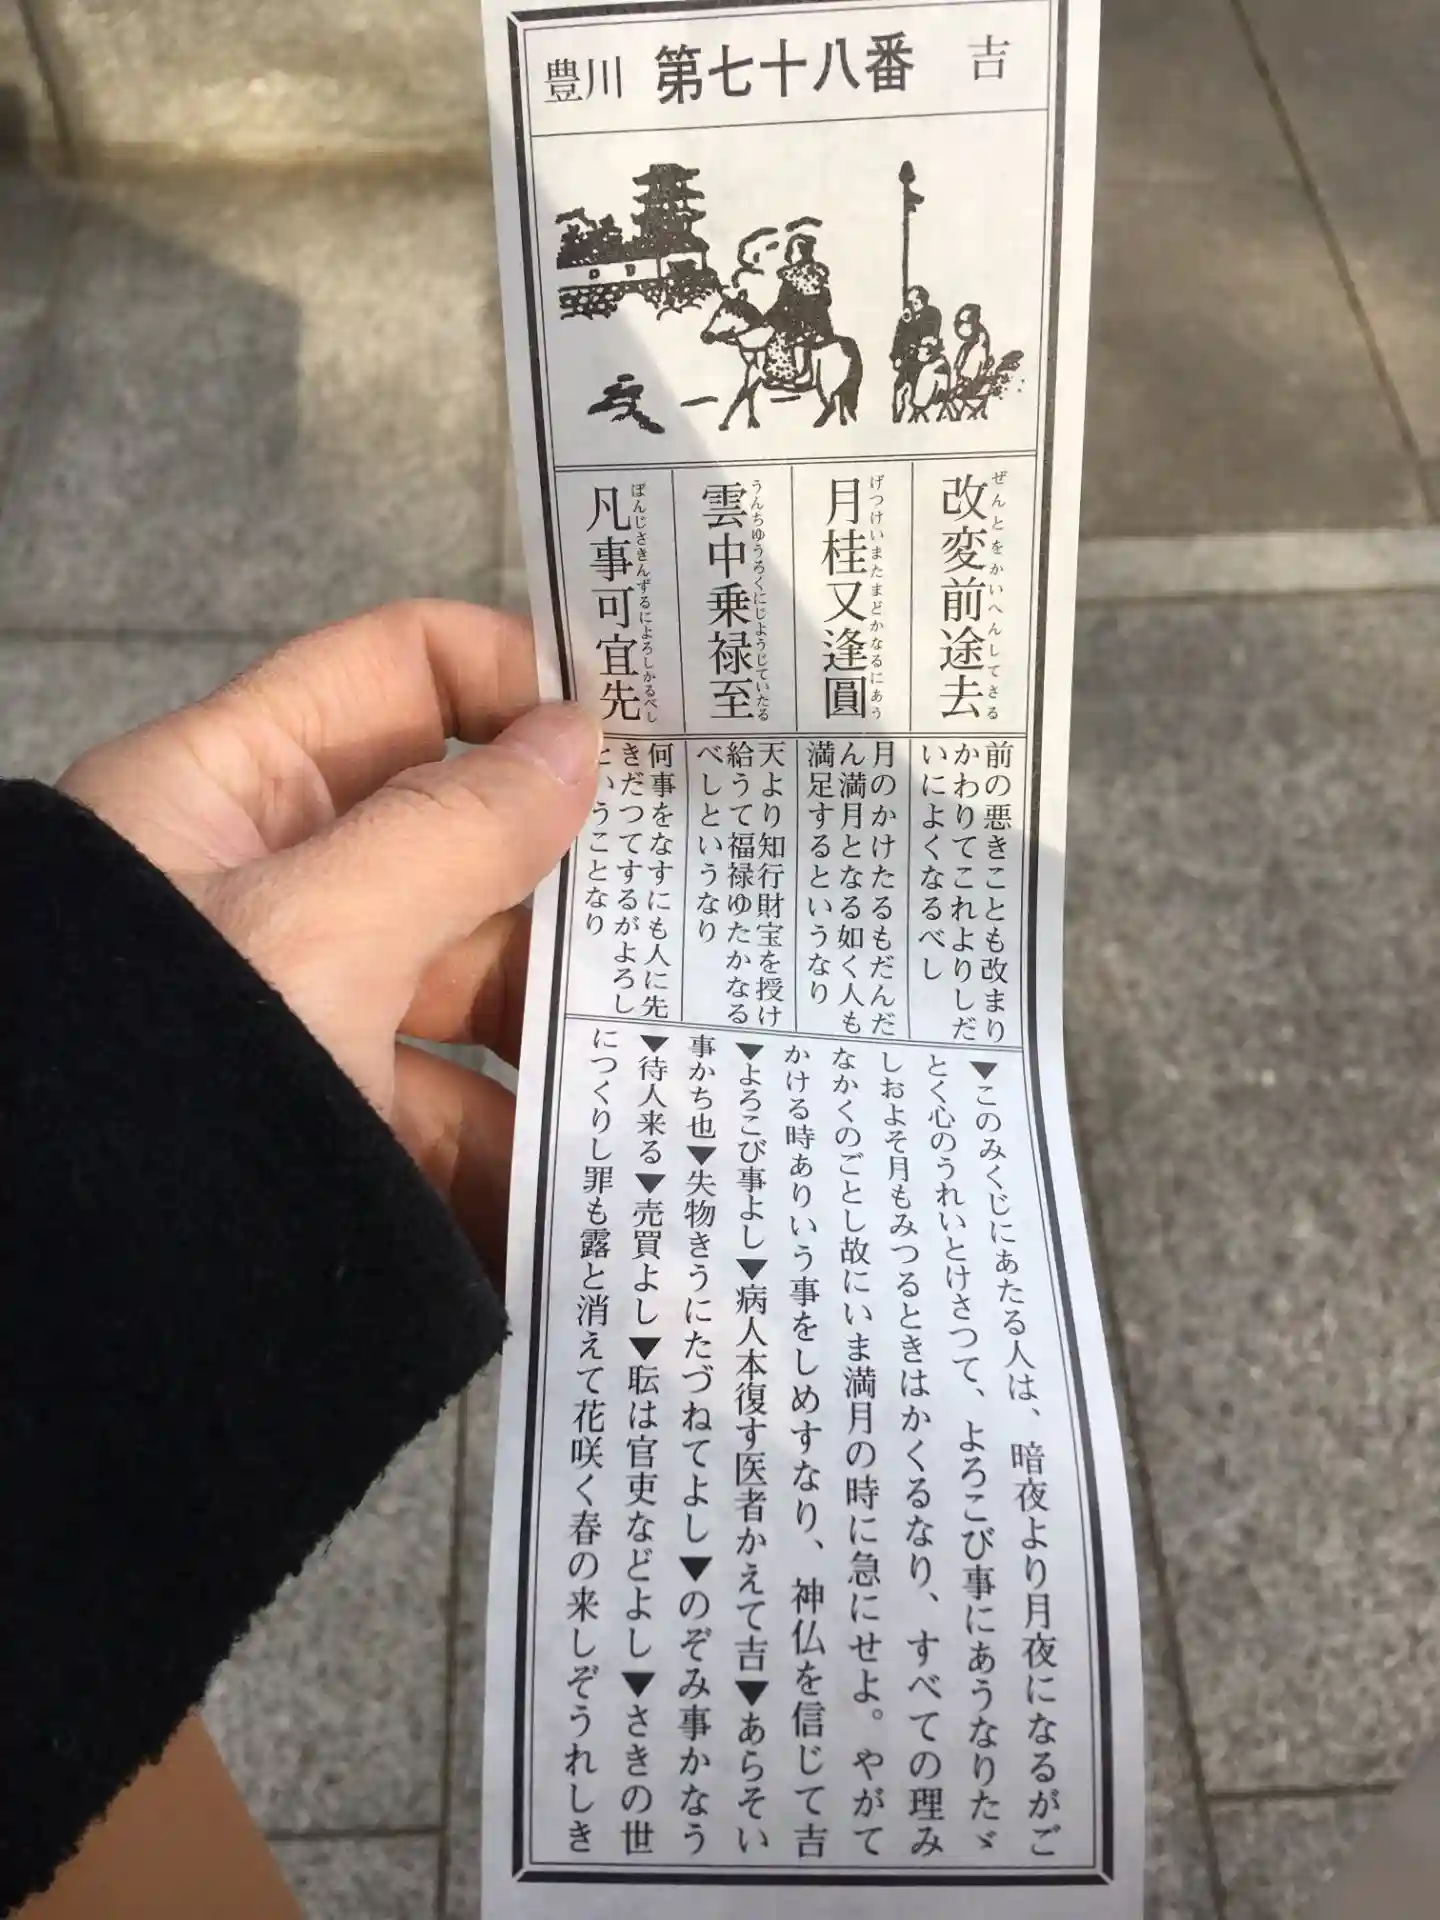 豊川 第七十八番 吉
改変前途去
ぜんとをかいへんしてさる
月桂又逢圓
げつけいまたまどかなるにあう
雲中乗禄至
うんちゆうろくにじようじていたる
凡事可宜先
ぼんじさきんずるによろしかるべし
前の悪きことも改まり
かわりてこれよりしだ
いによくなるべし
月のかけたるもだんだ
ん満月となる如く人も
満足するというなり
天より知行財宝を授け
給うて福禄ゆたかなる
べしというなり
何事をなすにも人に先
きだつてするがよろし
ということなり
▼このみくじにあたる人は、暗夜より月夜になるがご
とく心のうれいとけさつて、よろこび事にあうなりたゞ
しおよそ月もみつるときはかくるなり、すべての理み
なかくのごとし故にいま満月の時に急にせよ。やがて
かける時ありいう事をしめすなり、神仏を信じて吉
▼よろこび事よし▼病人本復す医者かえて吉▼あらそい
事かち也▼失物きうにたづねてよし▼のぞみ事かなう
▼待人来る▼売買よし▼転は官吏などよし▼さきの世
につくりし罪も露と消えて花咲く春の来しぞうれしき